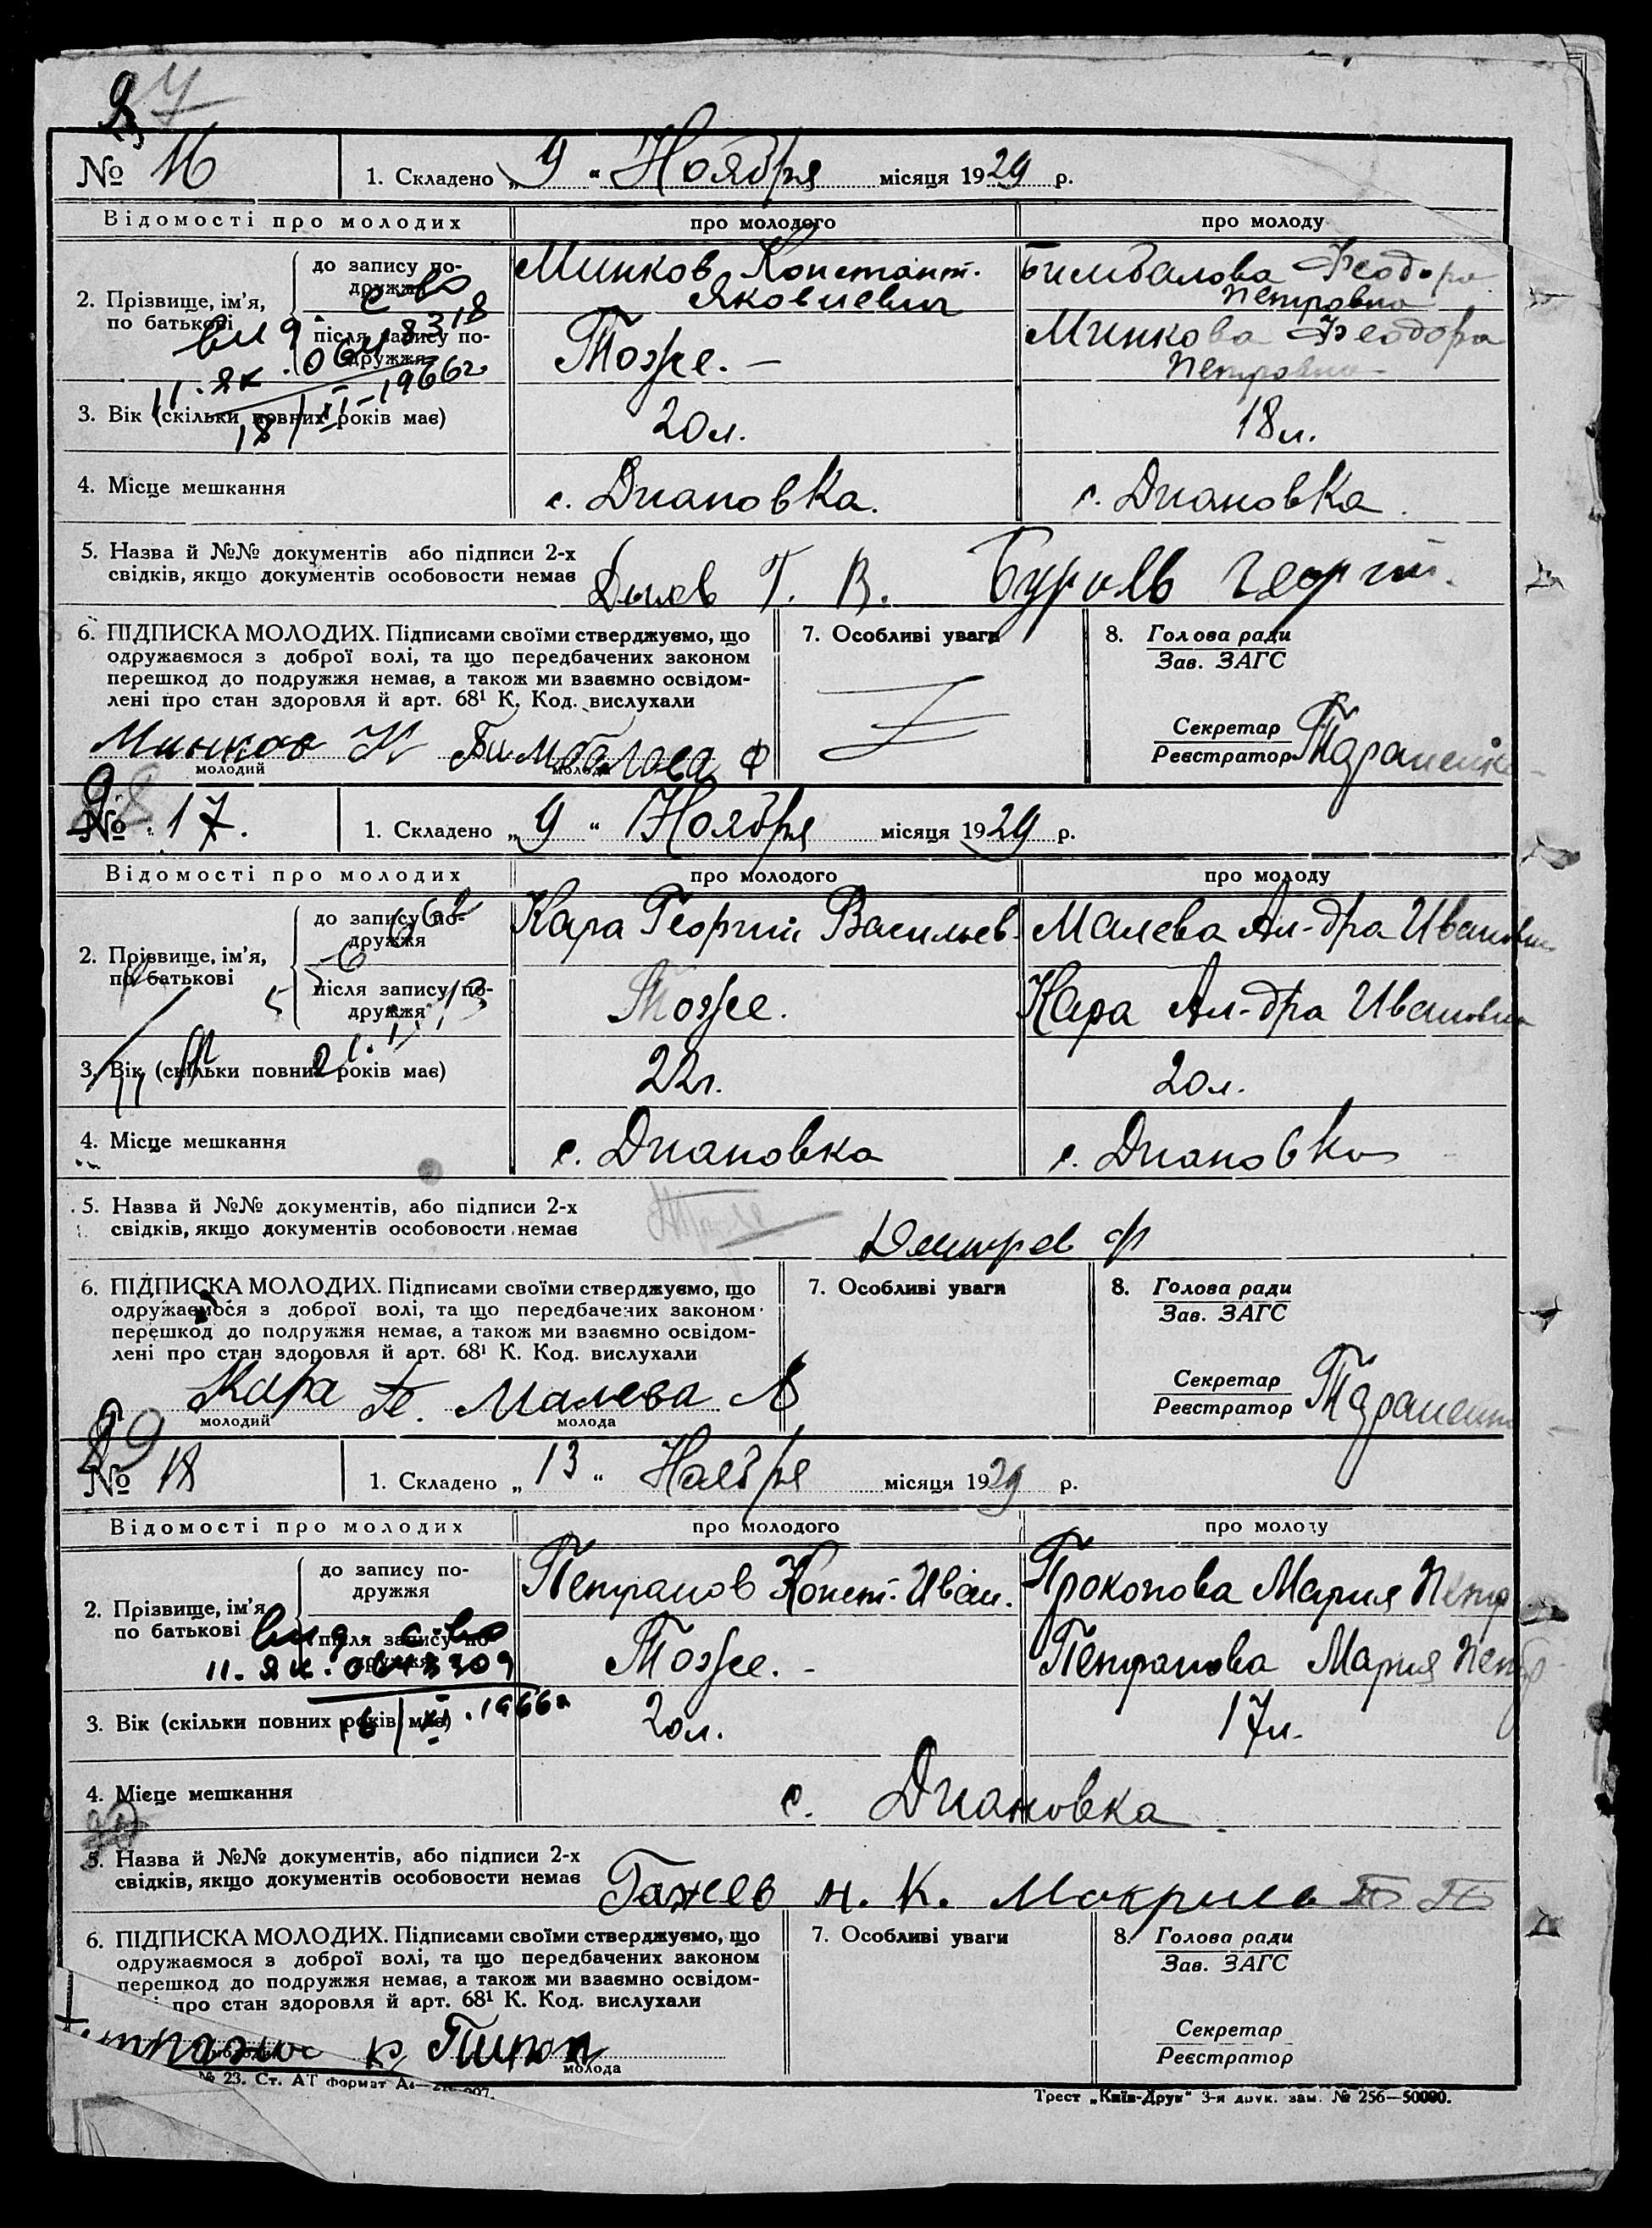 № 16 1. Складено „9“ Ноября місяця 1929 р.
Відомості про молодих про молодого про молоду
2. Прізвище, ім'я, по батькові
до запису подружжя Минков Констант. Яковлевич Бимбалова Феодора Петровна
після запису подружжя Тоже. — Минкова Феодора Петровна
выд. с-во
11. ЯК. 1966г
18/XI
3. Вік (скільки повних років має) 20 л. 18 л.
4. Місце мешкання с. Диановка. с. Диановка.
5. Назва й №№ документів або підписи 2-х
свідків, якщо документів особовости немає Т. В. Буроль Георгий.
6. ПІДПИСКА МОЛОДИХ. Підписами своїми стверджуємо, що
одружаємося з доброї волі, та що передбачених законом
перешкод до подружжя немає, а також ми взаємно освідом-
лені про стан здоровля й арт. 68¹ К. Код. вислухали
Минков К Бимбалова Ф
молодий молода
7. Особливі уваги
8. Голова ради
Зав. ЗАГС
Секретар
Реєстратор Тараненко
№ 17. 1. Складено „9“ Ноября місяця 1929 р.
Відомості про молодих про молодого про молоду
2. Прізвище, ім'я, по батькові
до запису подружжя Кара Георгий Васильев. Малева Ал-дра Ивановна
після запису подружжя Тоже. Кара Ал-дра Ивановна
3. Вік (скільки повних років має) 22 г. 20 л.
4. Місце мешкання с. Диановка с. Диановка
5. Назва й №№ документів, або підписи 2-х
свідків, якщо документів особовости немає Ф
6. ПІДПИСКА МОЛОДИХ. Підписами своїми стверджуємо, що
одружаємося з доброї волі, та що передбачених законом
перешкод до подружжя немає, а також ми взаємно освідом-
лені про стан здоровля й арт. 68¹ К. Код. вислухали
Кара Г. Малева А
молодий молода
7. Особливі уваги
8. Голова ради
Зав. ЗАГС
Секретар
Реєстратор Тараненко
№ 18 1. Складено „13“ Ноября місяця 1929 р.
Відомості про молодих про молодого про молоду
2. Прізвище, ім'я, по батькові
до запису подружжя Петранов Конст. Иван. Прокопова Мария Петр
після запису подружжя Тоже. - Петранова Мария Петр
выд. с-во
11. ЯК. 0643309
16/XI. 1966г
3. Вік (скільки повних років має) 20 л. 17 л.
4. Місце мешкання с. Диановка.
5. Назва й №№ документів, або підписи 2-х
свідків, якщо документів особовости немає Н. К.
6. ПІДПИСКА МОЛОДИХ. Підписами своїми стверджуємо, що
одружаємося з доброї волі, та що передбачених законом
перешкод до подружжя немає, а також ми взаємно освідом-
про стан здоровля й арт. 68¹ К. Код. вислухали
молода
7. Особливі уваги
8. Голова ради
Зав. ЗАГС
Секретар
Реєстратор
№ 23. Ст. АТ формат А4—
Трест „Київ-Друк“ 3-я друк. зам. № 256—50000.